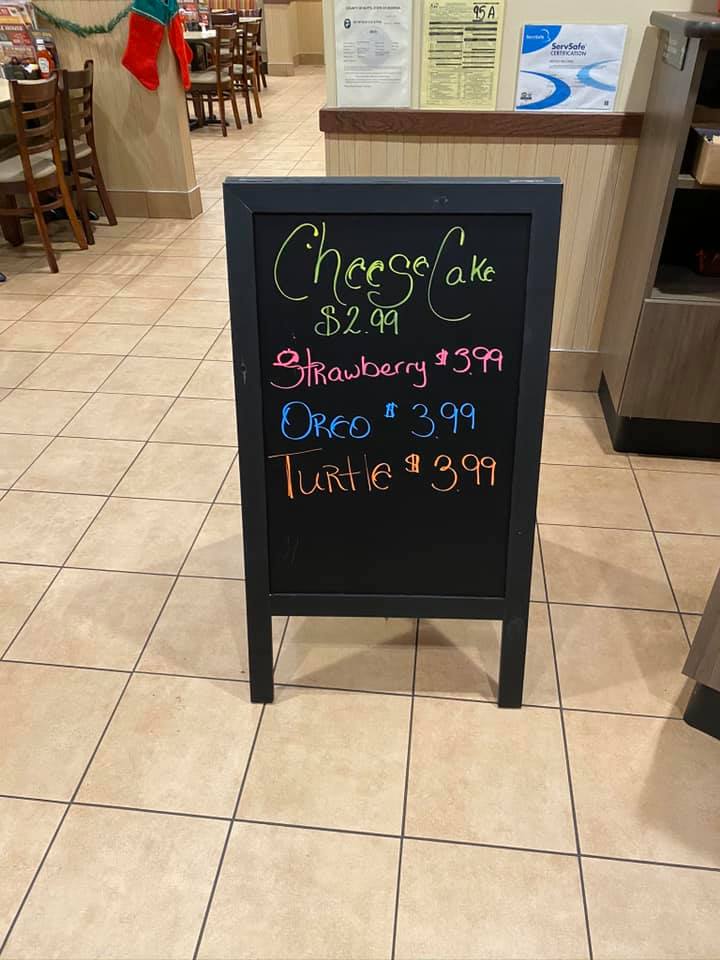 95 A
ServSafe
ServSafe
CERTIFICATION
CheeseCake
$2.99
Strawberry $3.99
OREO $3.99
Turtle $3.99